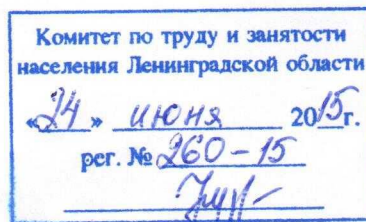 Комитет по труду и занятости
населения Ленинградской области
«24» июня 2015г.
рег. № 260-15